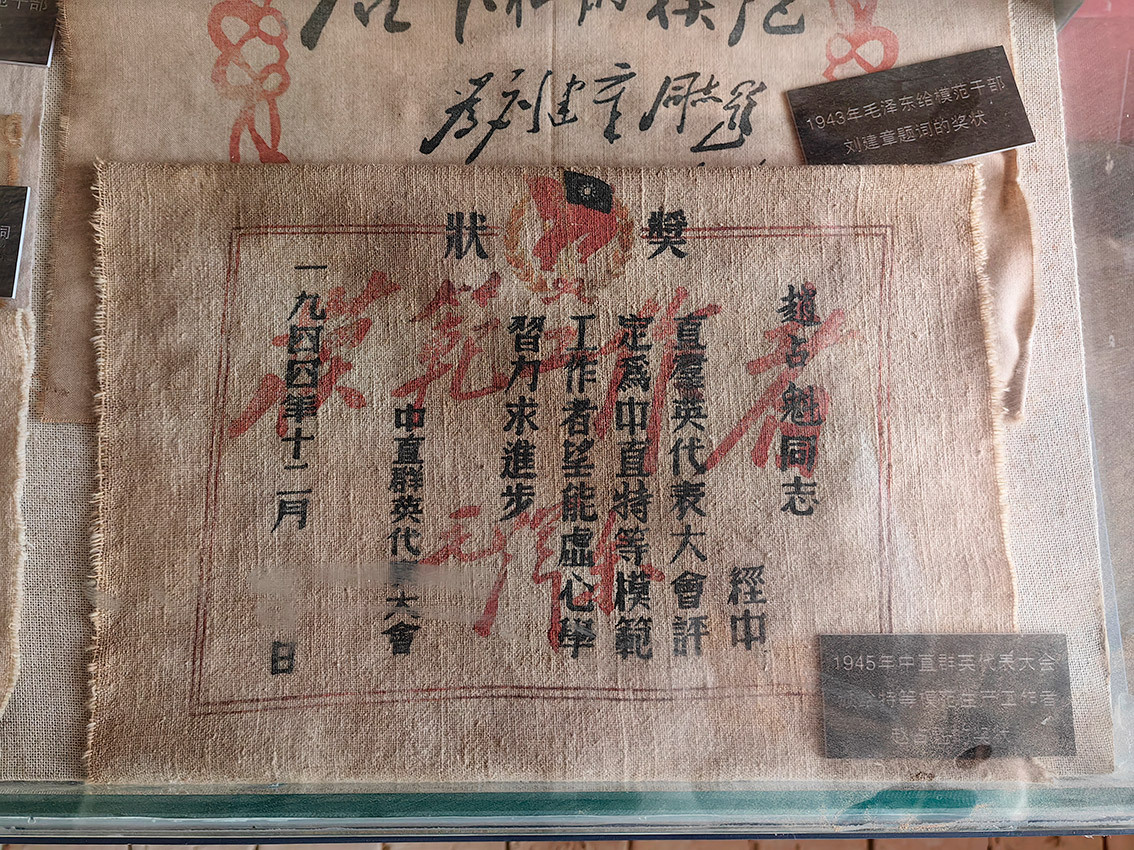 的模范
为刘建章同志题
1943年毛泽东给模范干部
刘建章题词的奖状
干部
词
獎狀
趙占魁同志
經中
直羣英代表大會評
定爲中直特等模範
工作者望能虛心學
習力求進步
中直群英代大會
一九四四年十二月 日
模範工作者
毛澤東
1945年中直群英代表大会
特等模范生产工作者
赵占魁的奖状